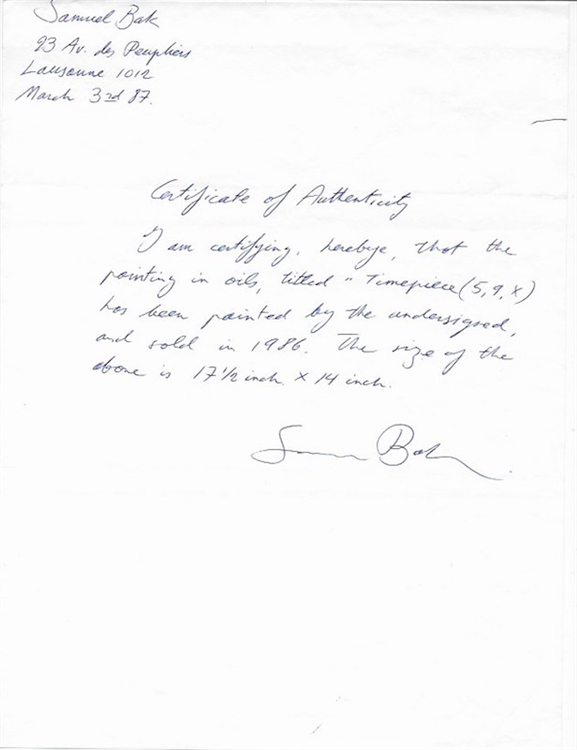 Samuel Bak
23 Av. des Peupliers
Lausanne 1012
March 3rd 87.
Certificate of Authenticity
I am certifying, herebye, that the
painting in oils, titled "Timepiece (5, 9, X)
has been painted by the undersigned,
and sold in 1986. The size of the
above is 17 1/2 inch × 14 inch.
Samuel Bak